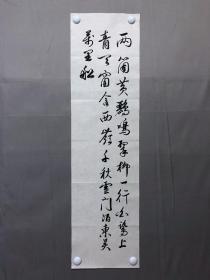 两箇黄鹂鸣翠柳一行白鹭上
青天窗含西岭千秋雪门泊东吴
万里船